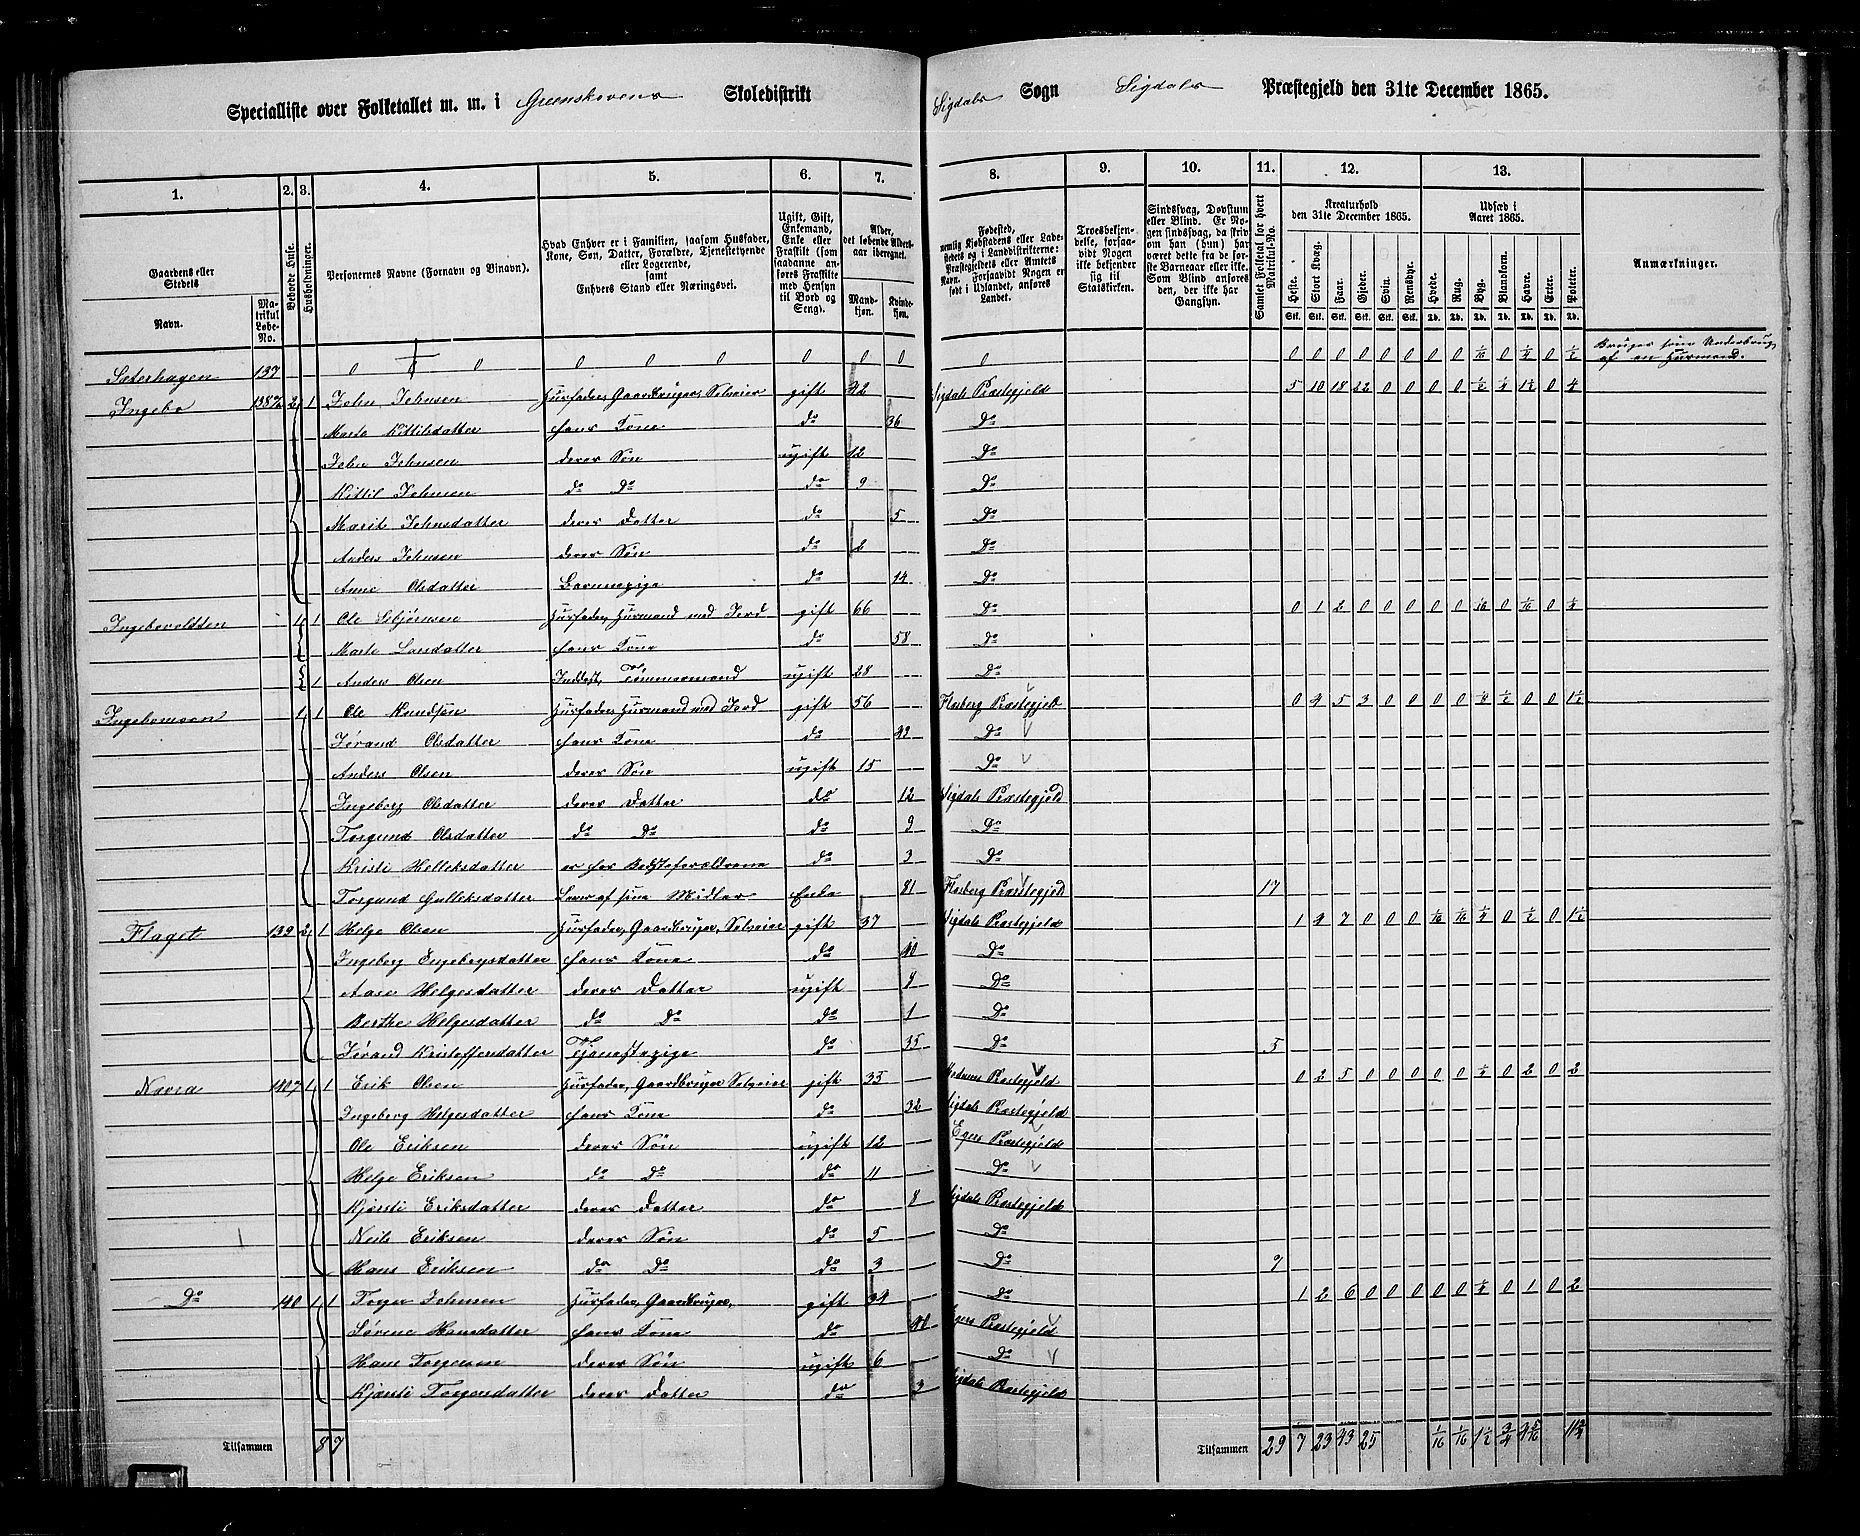 Specialliste over Folketallet m. m. i Skoledistrikt Sigdals Sogn Sigdals Præstegjeld den 31te December 1865.
1. 2. 3. 4. 5. 6. 7. 8. 9. 10. 11. 12. 13.
Gaardens eller Stedets Navn.
Matrikul Løbe-No.
Beboede Huse.
Husholdninger.
Personernes Navne (Fornavn og Binavn).
Hvad Enhver er i Familien, saasom Husfader, Kone, Søn, Datter, Forældre, Tjenestetyende eller Logerende, samt Enhvers Stand eller Næringsvei.
Ugift, Gift, Enkemand, Enke eller Fraskilt (som saadanne anføres Fraskilte med Hensyn til Bord og Seng).
Alder, det løbende Aldersaar iberegnet.
Mandkjøn. Kvindekjøn.
Fødested,
Troesbekjendelse, forsaavidt Nogen ikke bekjender sig til Statskirken.
Sindssvag, Døvstum eller Blind. Er Nogen sindssvag, da skrives om han (hun) har været det fra de første Barneaar eller ikke. Som Blind anføres den, der ikke har Gangsyn.
Samlet Folketal for hvert Matrikul-No.
Kreaturhold den 31te December 1865.
Heste. Stort Kvæg. Faar. Gjeder. Svin. Rensdyr.
Udsæd i Aaret 1865.
Hvede. Rug. Byg. Blandkorn. Havre. Erter. Poteter.
Anmærkninger.
Sæterhagen 137 0 0 0 0 0 0 0 0 0 0 Bruges som Underbrug
af en Husmand.
Ingebo 2 1 John Johnsen Husfader, Gaardbruger, Selveier gift 42 Sigdals Præstegjeld 5 10 18 22 0 0 0 0 ½ ¼ 1½ 0 4
Marte Kittilsdatter hans Kone do 36 Do
John Johnsen deres Søn ugift 12 Do
Kittil Johnsen do Do do 9 Do
Marit Johnsdatter deres Datter do 5 Do
Anders Johnsen deres Søn do 2 Do
Anne Olsdatter Barnepige do 14 Do
1 1 Ole Husfader, Husmand med Jord gift 66 Do 0 1 2 0 0 0 0 0 0 0
Marte Larsdatter hans Kone do 58 Do
1 Anders Olsen Inderst, Tømmermand ugift 28 Do
Ingebomoen 1 1 Ole Knudsen Husfader, Husmand med Jord gift 56 Flesberg Præstegjeld 0 4 5 3 0 0 0 0 ¼ ½ 0 0 1½
Jørand Olsdatter hans Kone do 49 Do
Anders Olsen deres Søn ugift 15 Do
Ingeborg Olsdatter deres Datter do 12 Sigdals Præstegjeld
Torgund Olsdatter do Do do 9 Do
Kristi Helleksdatter er hos Bedsteforældrene do 3 Do
Torgund Gulleksdatter Lever af sine Midler Enke 81 Flesberg Præstegjeld 17
Flaget 139 2 1 Helge Olsen Husfader, Gaardbruger, Selveier gift 37 Sigdals Præstegjeld 1 4 7 0 0 0 ½ 0 1½
Ingeborg Engebregtsdatter hans Kone do 40 Do
Aase Helgesdatter deres Datter ugift Do
Berthe Helgesdatter do Do do 1 Do
Jørand Kristoffersdatter Tjenestepige do 35 Do 5
1 1 Erik Olsen Husfader, Gaardbruger Selveier gift 35 Modums Præstegjeld 0 2 5 0 0 0 0 0 ¼ 0 2 0 2
Ingeborg Helgesdatter hans Kone do 32 Sigdals Præstegjeld
Ole Eriksen deres Søn ugift 12 Egers Præstegjeld
Helge Eriksen do Do do 11 Do
Kjersti Eriksdatter deres Datter do 8 Sigdals Præstegjeld
Neils Eriksen deres Søn do 5 Do
Hans Eriksen do Do do 3 Do 7
Do 140 1 1 Torger Johnsen Husfader, Gaardbruger, gift 34 Do 1 2 6 0 0 0 0 0 ¼ 0 1 0 2
Sørene Hansdatter hans Kone do 40 Egers Præstegjeld
Hans Torgersen deres Søn ugift 6 Do
Kjersti Torgersdatter deres Datter do 3 Sigdals Præstegjeld
Tilsammen 8 7 Tilsammen 29 7 23 43 25 1/16 1/16 1½ ¾